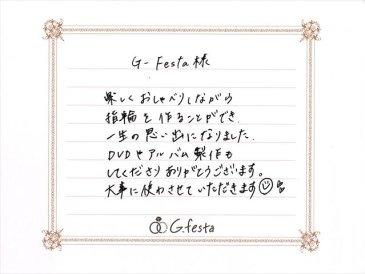 G-Festa様
楽しくおしゃべりしながら
指輪を作ることができ
一生の思い出になりました.
DVDやアルバム製作も
してくださりありがとうございます。
大事に使わさせていただきます
G.festa